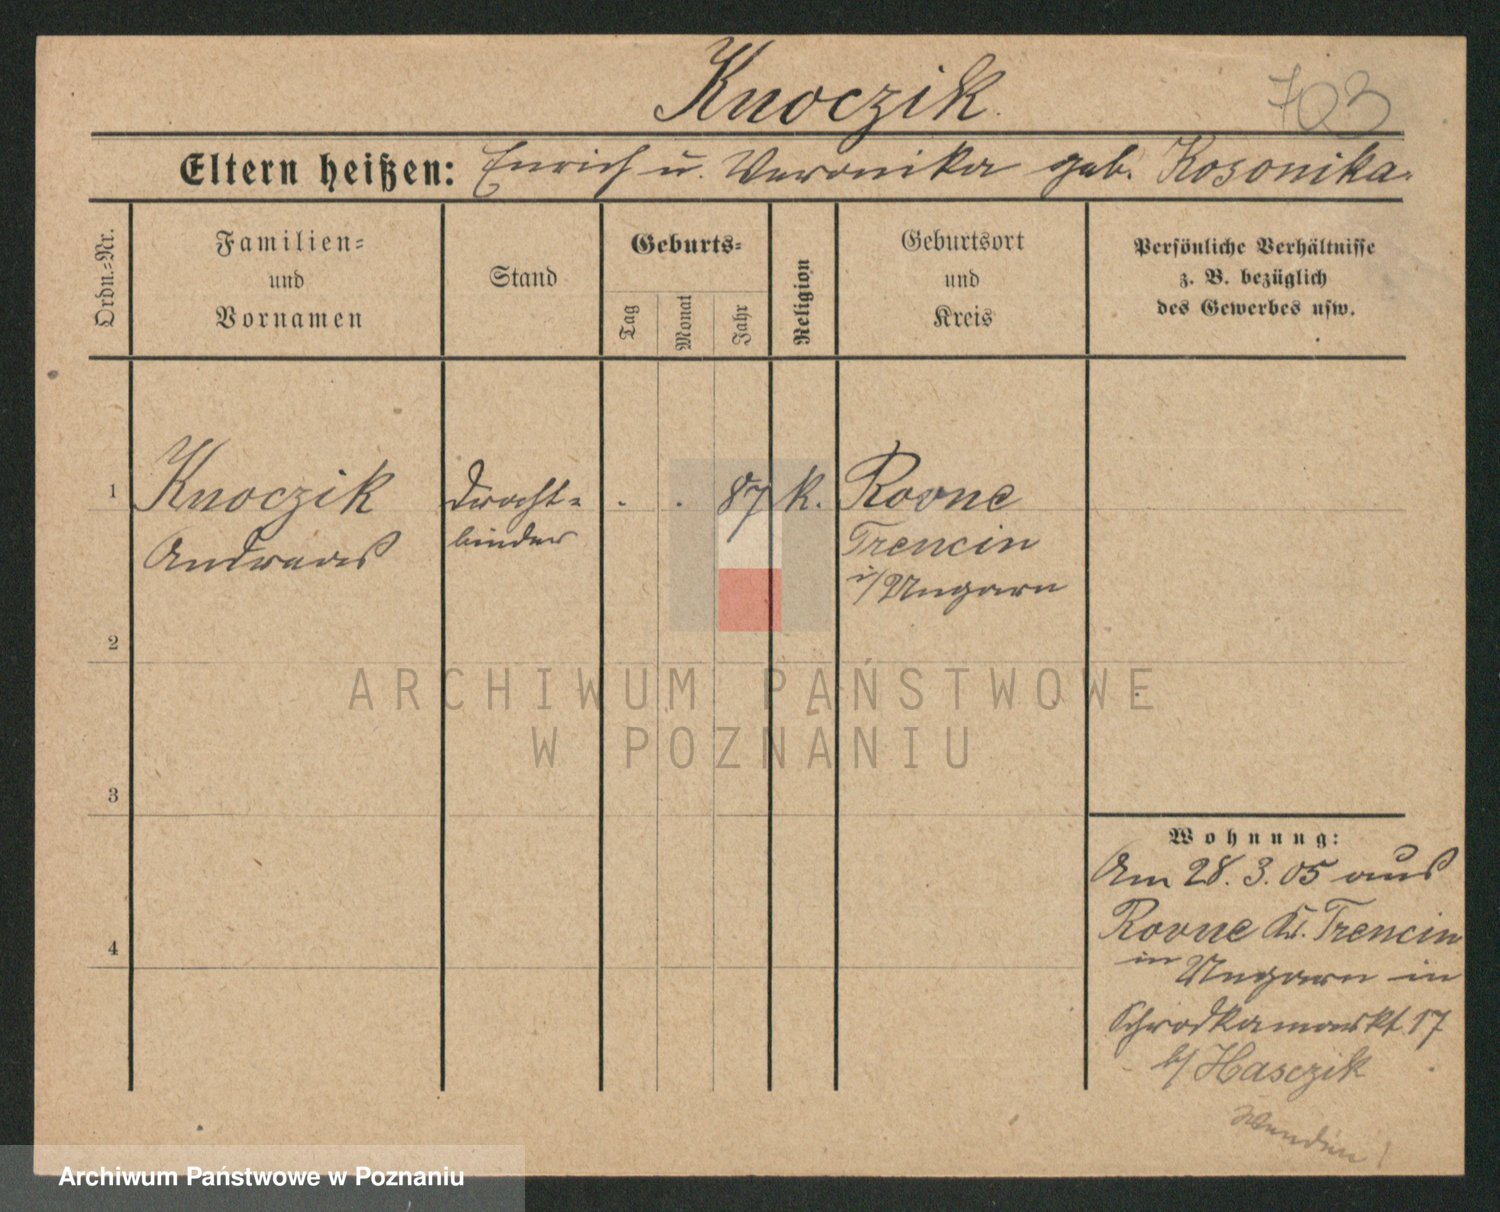 Knoczik
703
Eltern heißen: Emrich u. Veronika geb. Kosonika.
Ordn.-Nr.
Familien-
und
Vornamen
Stand
Geburts-
Tag
Monat
Jahr
Religion
Geburtsort
und
Kreis
Persönliche Verhältnisse
z. B. bezüglich
des Gewerbes usw.
1 Knoczik Dracht- . . 87 K. Rovne
Andreas binder Trencin
i/Ungarn
2
3
4
Wohnung:
Am 28. 3. 05 aus
Rovne Kr. Trencin
in Ungarn in
Schrodkamarkt 17
b/ Hasczik
Wenden!
ARCHIWUM PAŃSTWOWE
W POZNANIU
Archiwum Państwowe w Poznaniu